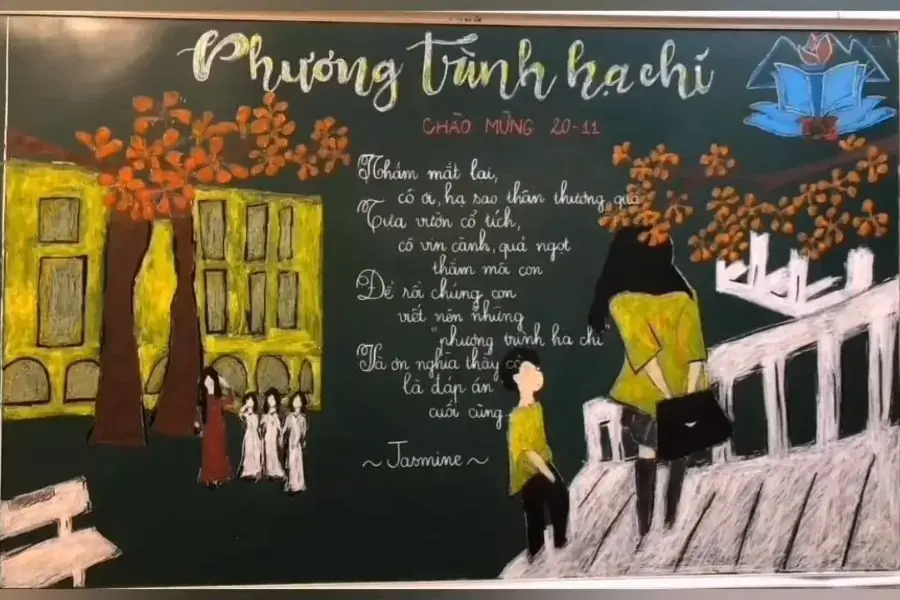 Phương trình hạ chí
CHÀO MỪNG 20-11
Nhắm mắt lại,
cô ơi, hạ sao thân thương quá
Tựa vườn cổ tích,
cô vin cành, quả ngọt
thắm mã con
Để rồi chúng con
viết nên những
"phương trình hạ chí"
Và ơn nghĩa thầy cô
là đáp án
cuối cùng
~ Jasmine ~